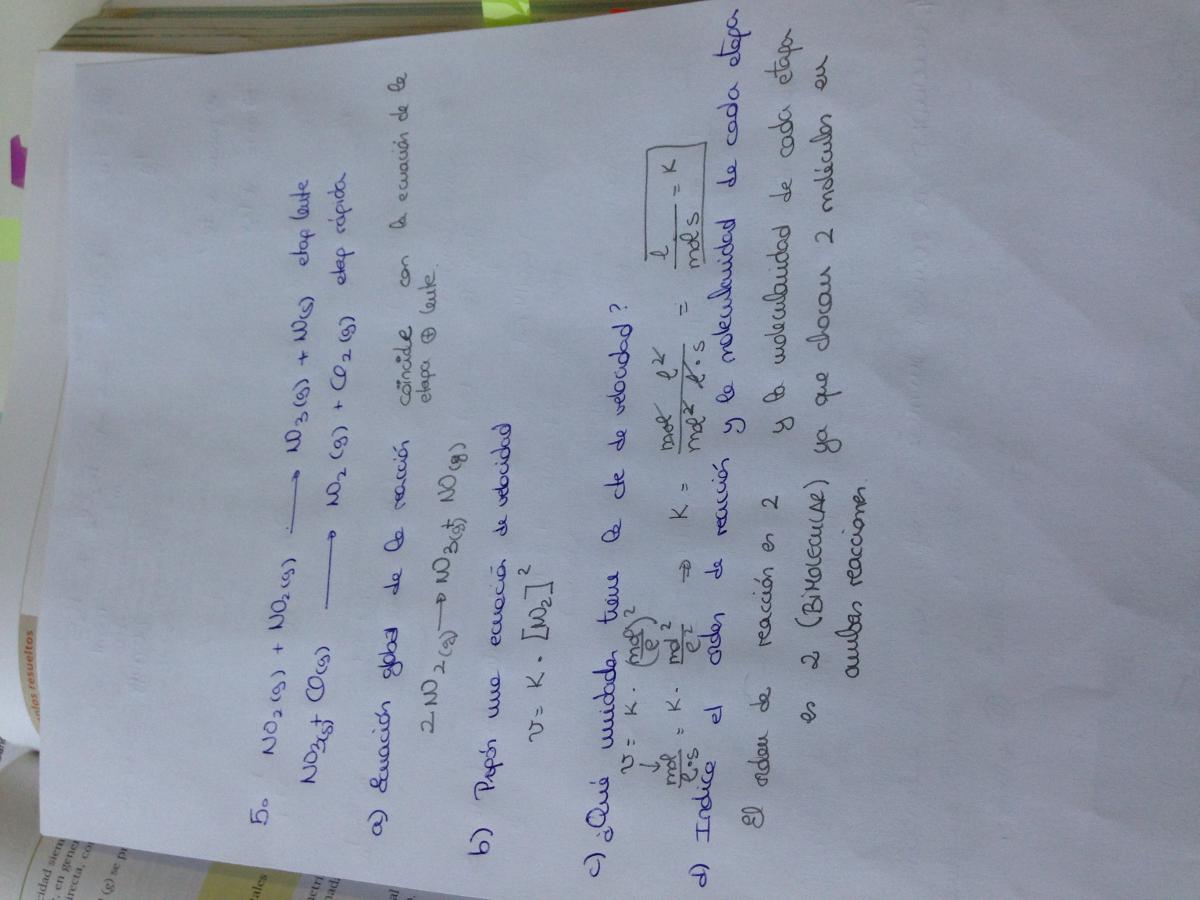 5. NO2(g) + NO2(g) → NO3(g) + NO(g) etap lente
NO3(g) + CO(g) → NO2(g) + CO2(g) etap rápida
a) Ecuación global de la reacción coincide con la ecuación de la
etapa ⊕ lente.
2 NO2(g) → NO3(g) + NO(g)
b) Propón una ecuación de velocidad
v = K · [NO2]²
c) ¿Qué unidades tiene la cte de velocidad?
v = K · (mol/l)²
↓
mol/l·s = K · mol²/l² ⇒ K = mol l²/mol² l·s = l/mol s = K
d) Indice el orden de reacción y la molecularidad de cada etapa
El orden de reacción es 2 y la molecularidad de cada etapa
es 2 (BiMOLECULAR) ya que chocan 2 moléculas en
ambas reacciones.
plos resueltos
cidad siem
, en gener
irecta, co
(g) se p
tales